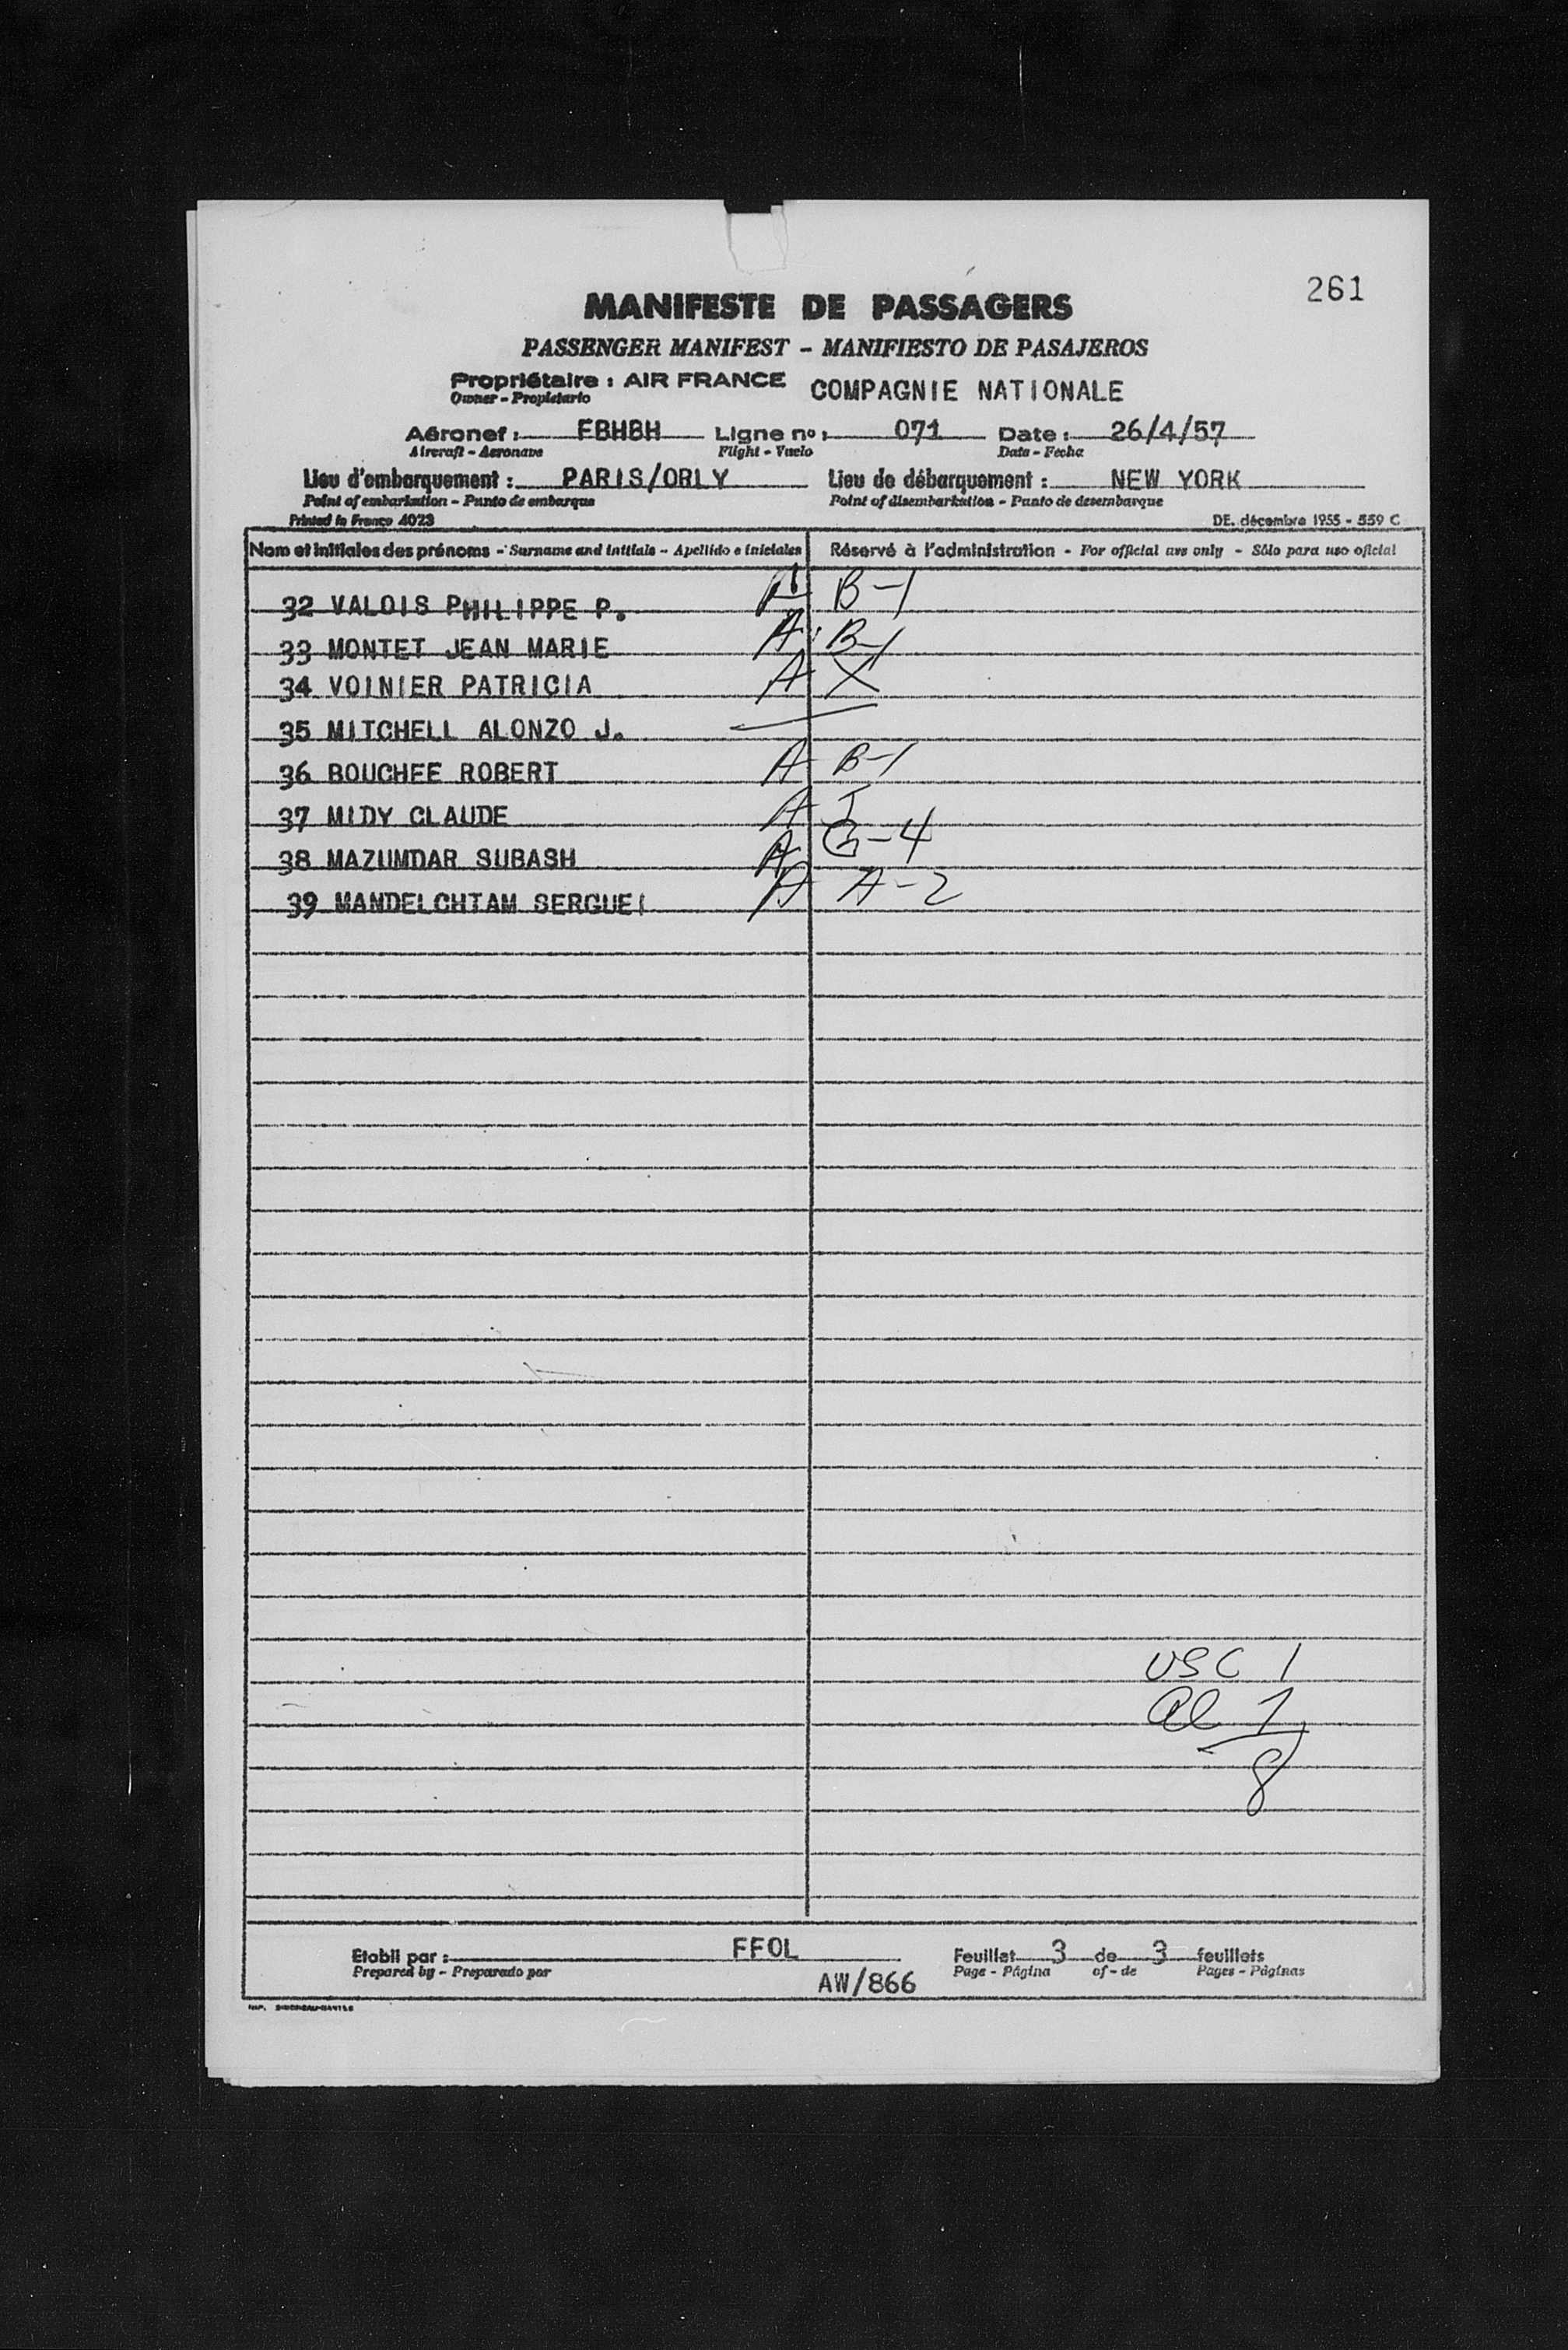 261
MANIFESTE DE PASSAGERS
PASSENGER MANIFEST - MANIFIESTO DE PASAJEROS
Propriétaire : AIR FRANCE COMPAGNIE NATIONALE
Owner - Propietario
Aéronef : FBHBH Ligne no : 071 Date : 26/4/57
Aircraft - Aeronave Flight - Vuelo Date - Fecha
Lieu d'embarquement : PARIS/ORLY Lieu de débarquement : NEW YORK
Point of embarkation - Punto de embarque Point of disembarkation - Punto de desembarque
Printed in France 4023 DE. décembre 1955 - 559 C
Nom et initiales des prénoms - Surname and initials - Apellido e iniciales Réservé à l'administration - For official use only - Sólo para uso oficial
32 VALOIS PHILIPPE P. A B-1
33 MONTET JEAN MARIE A B-1
34 VOINIER PATRICIA A X
35 MITCHELL ALONZO J.
36 BOUCHEE ROBERT A B-1
37 MIDY CLAUDE A I
38 MAZUMDAR SUBASH A G-4
39 MANDELCHTAM SERGUEI A A-2
USC 1
al 7
8
Etabli par : FFOL Feuillet 3 de 3 feuillets
Prepared by - Preparado por Page - Página of - de Pages - Páginas
AW/866